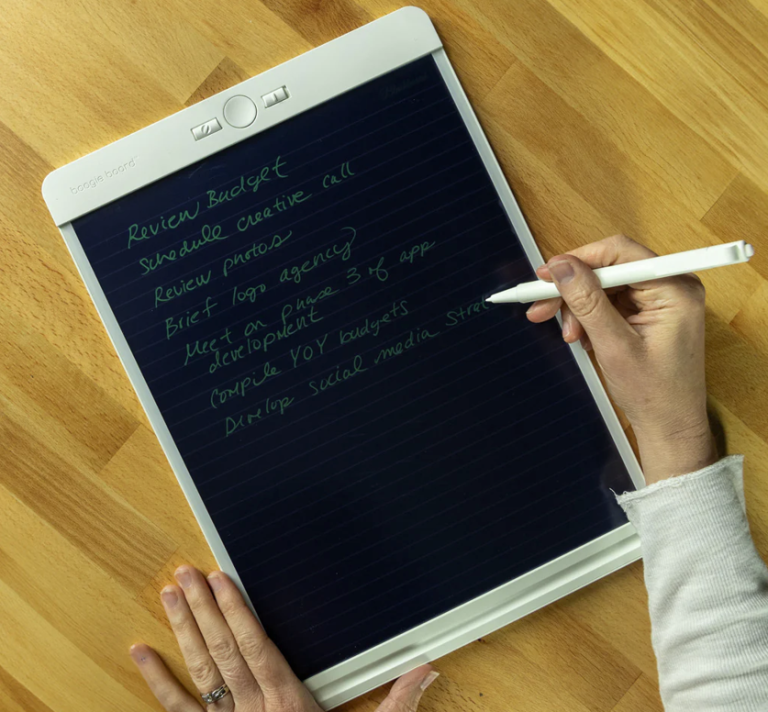 boogie board
Review Budget
Schedule creative call
Review photos
Brief logo agency
Meet on Phase 3 of app
development
Compile YOY budgets
Develop social media Strat